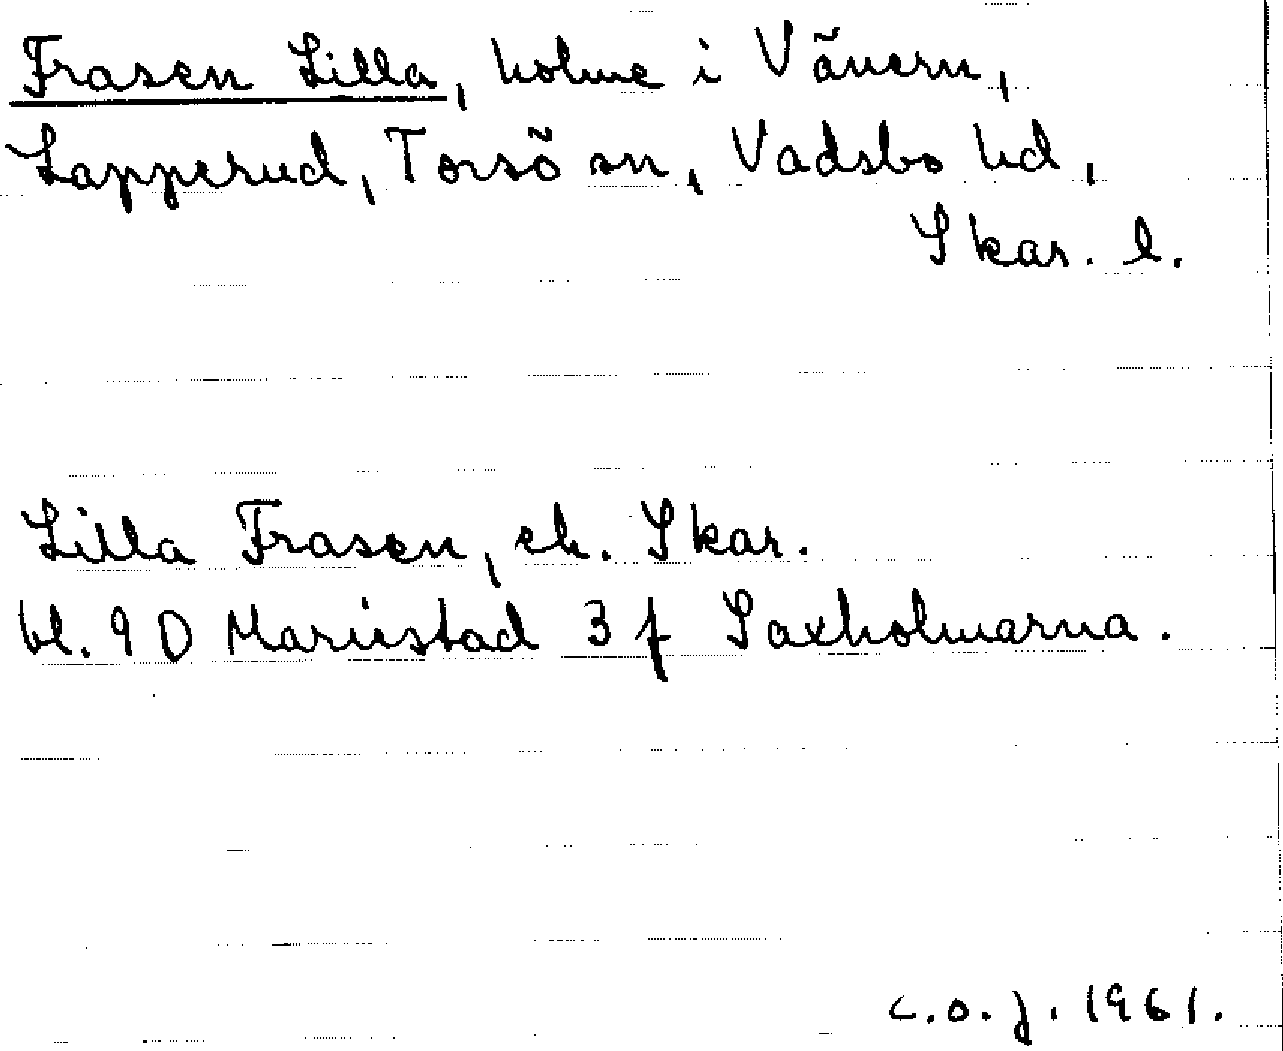 Frasen Lilla, holme i Vänern,
Lapperud, Torsö sn, Vadsbo hd,
Skar. l.
Lilla Frasen, ek. Skar.
bl. 9 D Mariestad 3 f Saxholmarna.
c.o.j. 1961.